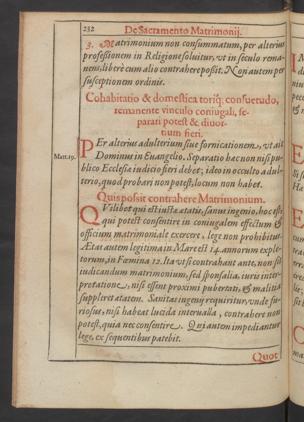 232
De Sacramento Matrimonij.
3. Matrimonium non consummatum, per alterius
professionem in Religione soluitur, vt in seculo rema-
nens, liberè cum alio contrahere posit. Non autem per
susceptionem ordinis.
Cohabitatio & domestica toriq; consuetudo,
remanente vinculo coniugali, se-
parari potest & diuor-
tium fieri.
PEr alterius adulterium siue fornicationem, vt ait
Matt. 19.
Dominus in Euangelio. Separatio hæc non nisi pu-
blico Ecclesiæ iudicio fieri debet; ideo in occulto adul-
terio, quod probari non potest, locum non habet.
Quis possit contrahere Matrimonium.
QVilibet qui est iusta ætatis, sanus ingenio, hoc est,
qui potest consentire in coniugalem effectum &
officium matrimoniale exercere, lege non prohibitus.
Ætas autem legitima in Mare est 14. annorum exple-
torum, in Fœmina 12. Ita vt si contrahant ante, non sit
iudicandum matrimonium, sed sponsalia, iuris inter-
pretatione, nisi essent proximi pubertati, & malitia
suppleret ætatem. Sanitas ingenij requiritur, vnde fu-
riosus, nisi habeat lucida interualla, contrahere non
potest, quia nec consentire. Qui autem impediantur
lege, ex sequentibus patebit.
Quot